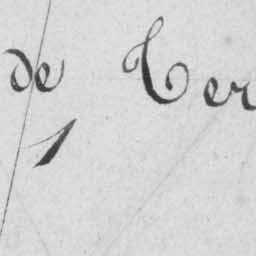 de Ter
1